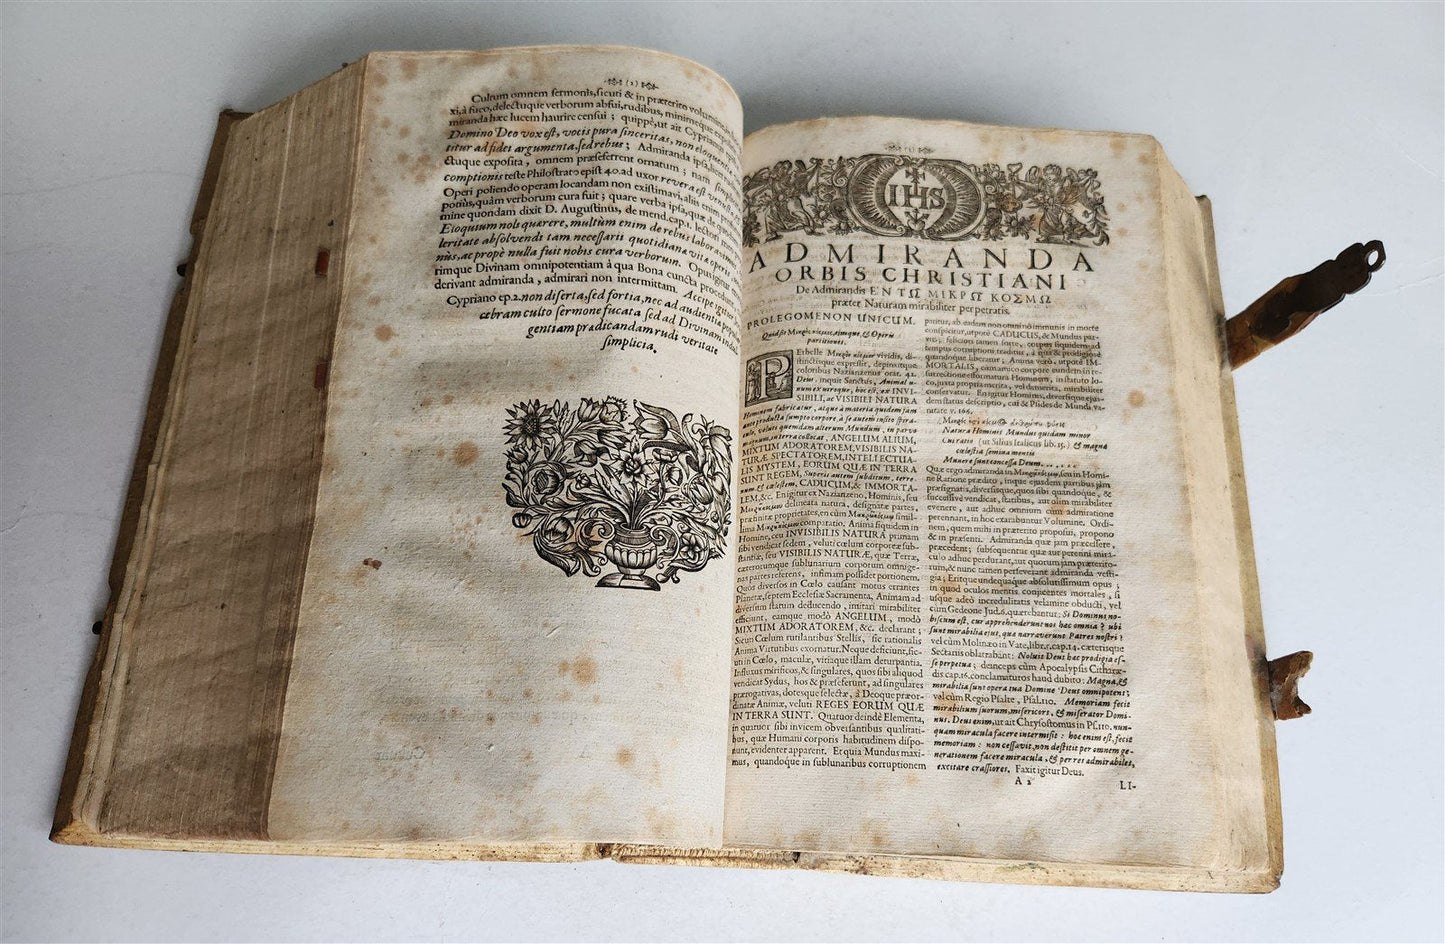 (2)
Cultum omnem sermonis, sicuti & in præterito volumin
xi, à fuco, delectuque verborum absui, rudibus, minimeque
miranda hæc lucem haurire censui; quippè, ut ait Cypria
Domino Deo vox est, vocis pura sinceritas, non eloquen
titur ad fidei argumenta, sed rebus; Admiranda ipsa,
ctuque exposita, omnem præseferrent ornatum; nam
comptionis teste Philostrato epist 40. ad uxor. revera est
Operi poliendo operam locandam non existimavi, aliis enim
potius, quàm verborum cura fuit; quare verba ipsa, quæ
mine quondam dixit D. Augustinus, de mend. cap. 1. lectori
Eloquium noli quærere, multum enim de rebus laboravimus
leritate absolvendi tam necessarii quotidiana vitæ operis
mus, ac propè nulla fuit nobis cura verborum. Opus igitur
rimque Divinam omnipotentiam à qua Bona cuncta procedunt
derivant admiranda, admirari non intermittam. Accipe igitur
Cypriano ep. 2. non diserta, sed fortia, nec ad audientiæ popularis
cebram culto sermone fucata sed ad Divinam indul
gentiam prædicandam rudi veritate
simplicia.
IHS
ADMIRANDA
ORBIS CHRISTIANI
De Admirandis ΕΝ ΤΩ ΜΙΚΡΩ ΚΟΣΜΩ
præter Naturam mirabiliter perpetratis.
PROLEGOMENON UNICUM.
Quid sit ejusque, & Operis
partitiones.
PErbelle vividis, di-
stinctisque expressit, depinxitque
coloribus Nazianzenus orat. 42.
Deus, inquit Sanctus, Animal u-
num ex utroque, hoc est, ex INVI-
SIBILI, ac VISIBILI NATURA
Hominem fabricatur, atque à materia quidem jam
ante producta sumpto corpore, à se autem insito spira-
culo, veluti quemdam alterum Mundum, in parvo
magnum, in terra collocat, ANGELUM ALIUM,
MIXTUM ADORATOREM, VISIBILIS NA-
TURÆ SPECTATOREM, INTELLECTUA-
LIS MYSTEM, EORUM QUÆ IN TERRA
SUNT REGEM, Superis autem subditum, terre-
num & cælestem, CADUCUM, & IMMORTA-
LEM, &c. En igitur ex Nazianzeno, Hominis, seu
delineata natura, designatæ partes,
præfinitæ proprietates, en cum simil-
lima comparatio. Anima siquidem in
Homine, ceu INVISIBILIS NATURA primam
sibi vendicat sedem, veluti cælum corporeæ sub-
stantiæ, seu VISIBILIS NATURÆ, quæ Terræ,
cæterorumque sublunarium corporum omnige-
nas partes referens, infimam possidet portionem.
Quos diversos in Cœlo causant motus errantes
Planetæ, septem Ecclesiæ Sacramenta, Animam ad
diversum statum deducendo, imitari mirabiliter
efficiunt, eamque modò ANGELUM, modò
MIXTUM ADORATOREM, &c. declarant;
Sicuti Cœlum rutilantibus Stellis, sic rationalis
Anima Virtutibus exornatur. Neque deficiunt, sic-
uti in Cœlo, maculæ, vitiaque illam deturpantia.
Influxus mirificos, & singulares, quos sibi aliquod
vendicat Sydus, hos & præseferunt, ad singulares
prærogativas, dotesque selectæ, à Deoque præor-
dinatæ Animæ, veluti REGES EORUM QUÆ
IN TERRA SUNT. Quatuor deindè Elementa,
in quatuor sibi invicem obversantibus qualitati-
bus, quæ Humani corporis habitudinem dispo-
nunt, evidenter apparent. Et quia Mundus maxi-
mus, quandoque in sublunaribus corruptionem
patitur, ab eadem non omninò immunis in morte
conspicitur, utporè CADUCUS, & Mundus par-
vus; feliciori tamen sorte, corpus siquidem ad
tempus corruptioni traditur, à qua & prodigiosè
quandoque liberatur; Anima verò, utpotè IM-
MORTALIS, cum amico corpore eundem in re-
surrectione efformatura Hominem, in statuto lo-
co, justa propria merita, vel demerita, mirabiliter
conservatur. En igitur Hominis, diversique ejus-
dem status descriptio, cui & Psides de Mundi va-
nitate v. 164.
Natura Hominis Mundus quidam minor
Cui ratio (ut Silius Italicus lib. 15.) & magna
cælestia semina mentis
Munere sunt concessa Deum.
Quæ ergo admiranda in seu in Homi-
ne Ratione prædito, inque ejusdem partibus jam
præsignatis, diversisque, quos sibi quandoque, &
successivè vendicat, statibus, aut olim mirabiliter
evenere, aut adhuc omnium cum admiratione
perennant, in hoc exarabuntur Volumine. Ordi-
nem, quem mihi in præterito proposui, propono
& in præsenti. Admiranda quæ jam præcessere,
præcedent; subsequentur quæ aut perenni mira-
culo adhuc perdurant, aut quorum jam præterito-
rum, & nunc tamen perseverant admiranda vesti-
gia; Eritque undequaque absolutissimum opus;
in quod oculos mentis conjicentes mortales, si
usque adeò incredulitatis velamine obducti, vel
cum Gedeone Jud. 6. quærebantur: Si Dominus no-
biscum est, cur apprehenderunt nos hæc omnia? ubi
sunt mirabilia ejus, quæ narraverunt Patres nostri?
vel cùm Molinæo in Vate, libr. 5. cap. 14. cæterisque
Sectariis oblatrabunt: Noluit Deus hæc prodigia es-
se perpetua; deinceps cùm Apocalypsis Citharæ-
dis cap. 16. conclamaturos haud dubito: Magna, &
mirabilia sunt opera tua Domine Deus omnipotens;
vel cùm Regio Psalte, Psal. 110. Memoriam fecit
mirabilium suorum, misericors, & miserator Domi-
nus. Deus enim, ut ait Chrysostomus in Ps. 110. nun-
quam miracula facere intermisit: hoc enim est, fecit
memoriam: non cessavit, non destitit per omnem ge-
nerationem facere miracula, & per res admirabiles,
excitare crassiores. Faxit igitur Deus.
A 2
LI-